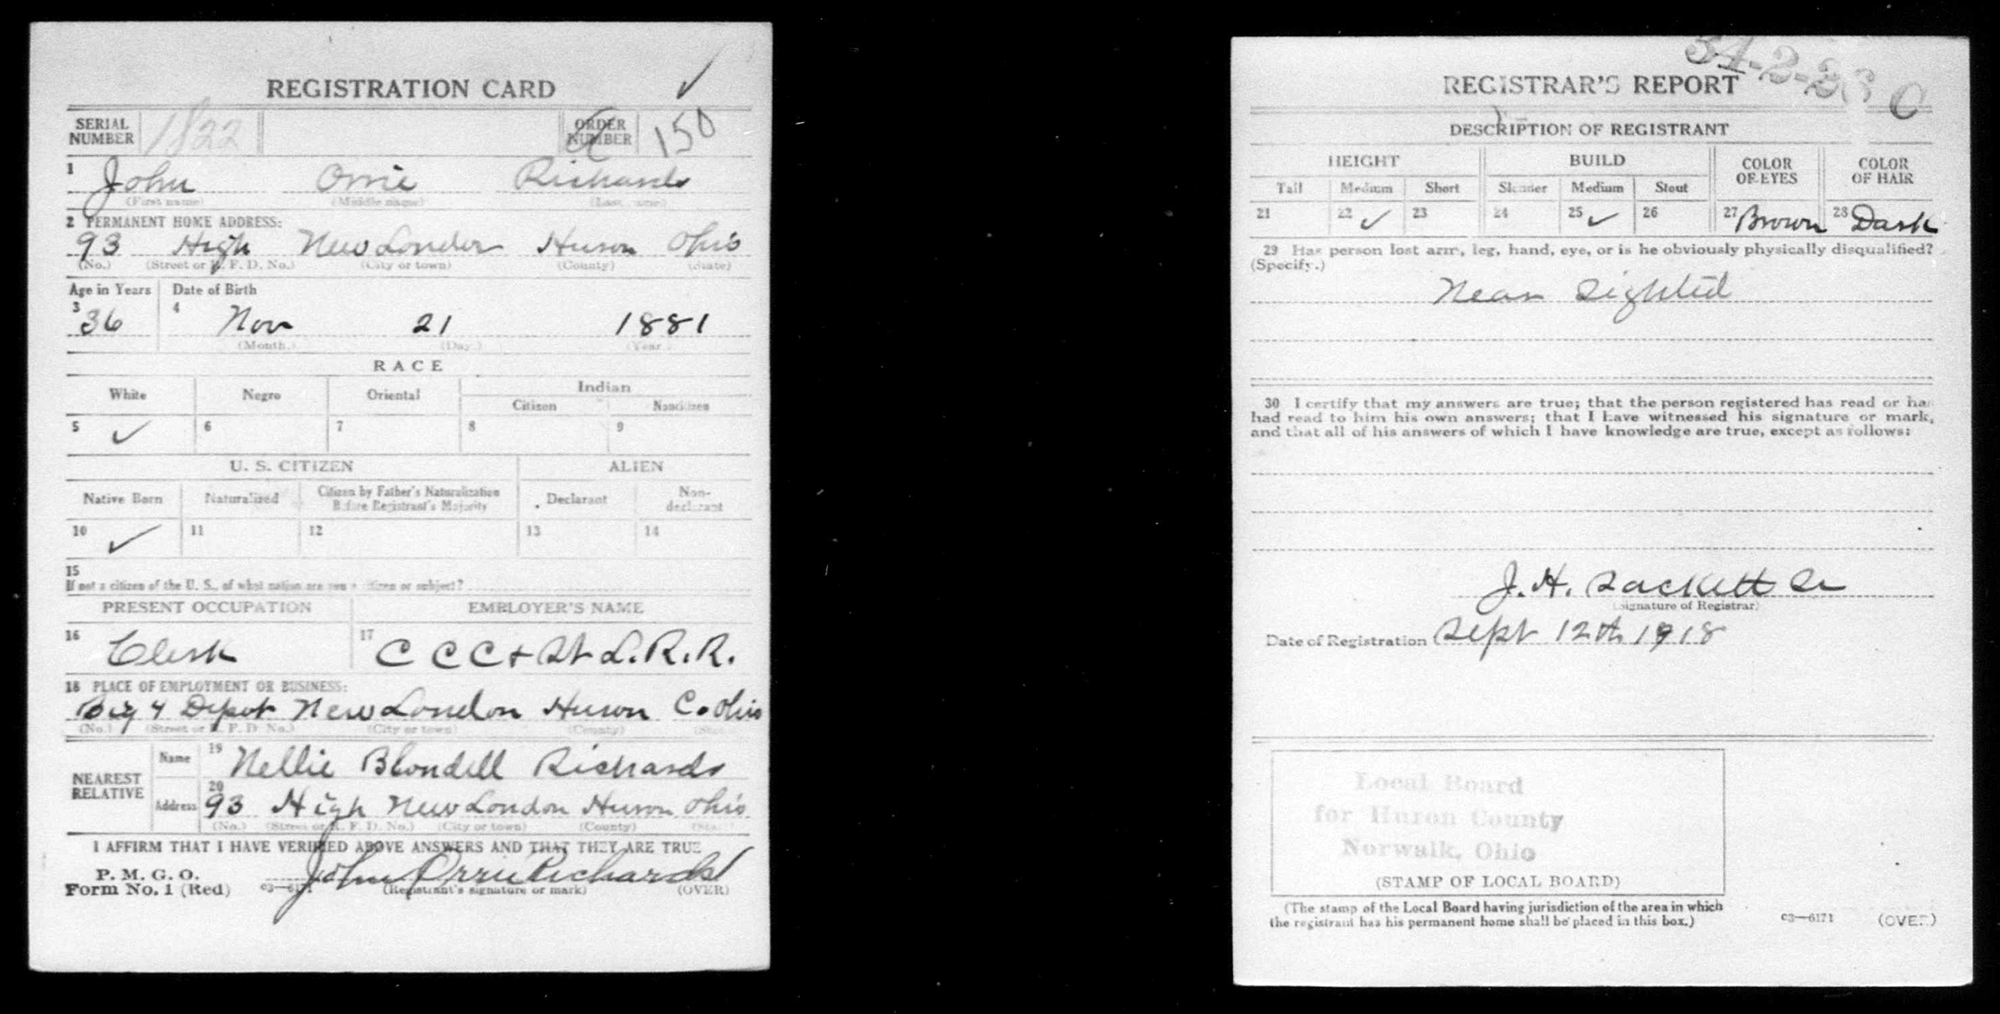 REGISTRATION CARD
SERIAL NUMBER 1822 ORDER NUMBER 150
1 John Orrie Richards
(First name) (Middle name) (Last name)
2 PERMANENT HOME ADDRESS:
93 High New London Huron Ohio
(No.) (Street or R. F. D. No.) (City or town) (County) (State)
Age in Years Date of Birth
3 36 4 Nov 21 1881
(Month.) (Day.) (Year.)
RACE
White Negro Oriental Indian
Citizen Noncitizen
5 ✓ 6 7 8 9
U. S. CITIZEN ALIEN
Native Born Naturalized Citizen by Father's Naturalization Before Registrant's Majority Declarant Non-declarant
10 ✓ 11 12 13 14
15
If not a citizen of the U. S., of what nation are you a citizen or subject?
PRESENT OCCUPATION EMPLOYER'S NAME
16 Clerk 17 C C C + St L. R. R.
18 PLACE OF EMPLOYMENT OR BUSINESS:
Big 4 Depot New London Huron Co. Ohio
(No.) (Street or R. F. D. No.) (City or town) (County) (State)
NEAREST RELATIVE Name 19 Nellie Blondell Richards
Address 20 93 High New London Huron Ohio
(No.) (Street or R. F. D. No.) (City or town) (County) (State)
I AFFIRM THAT I HAVE VERIFIED ABOVE ANSWERS AND THAT THEY ARE TRUE
P. M. G. O.
Form No. 1 (Red) c3—6171 John Orrie Richards
(Registrant's signature or mark) (OVER)
34-2-23 C
REGISTRAR'S REPORT
DESCRIPTION OF REGISTRANT
HEIGHT BUILD COLOR OF EYES COLOR OF HAIR
Tall Medium Short Slender Medium Stout
21 22 ✓ 23 24 25 ✓ 26 27 Brown 28 Dark
29 Has person lost arm, leg, hand, eye, or is he obviously physically disqualified?
(Specify.)
Near Sighted
30 I certify that my answers are true; that the person registered has read or has
had read to him his own answers; that I have witnessed his signature or mark,
and that all of his answers of which I have knowledge are true, except as follows:
J. H. Sackett Sr
(Signature of Registrar)
Date of Registration Sept 12th 1918
Local Board
for Huron County
Norwalk, Ohio
(STAMP OF LOCAL BOARD)
(The stamp of the Local Board having jurisdiction of the area in which
the registrant has his permanent home shall be placed in this box.)
c3—6171 (OVER)